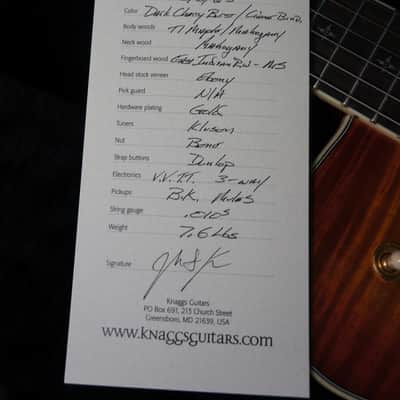 Color Dark Cherry Burst / Crème Bind.
Body woods T1 Maple / Mahogany
Neck wood Mahogany
Fingerboard wood East Indian R.W -
Head stock veneer Ebony
Pick guard N/A
Hardware plating Gold
Tuners Kluson
Nut Bone
Strap buttons Dunlop
Electronics V.V.T.T. 3-way
Pickups B.K. Mules
String gauge .010s
Weight 7.6 Lbs
Signature
Knaggs Guitars
PO Box 691, 213 Church Street
Greensboro, MD 21639, USA
www.knaggsguitars.com